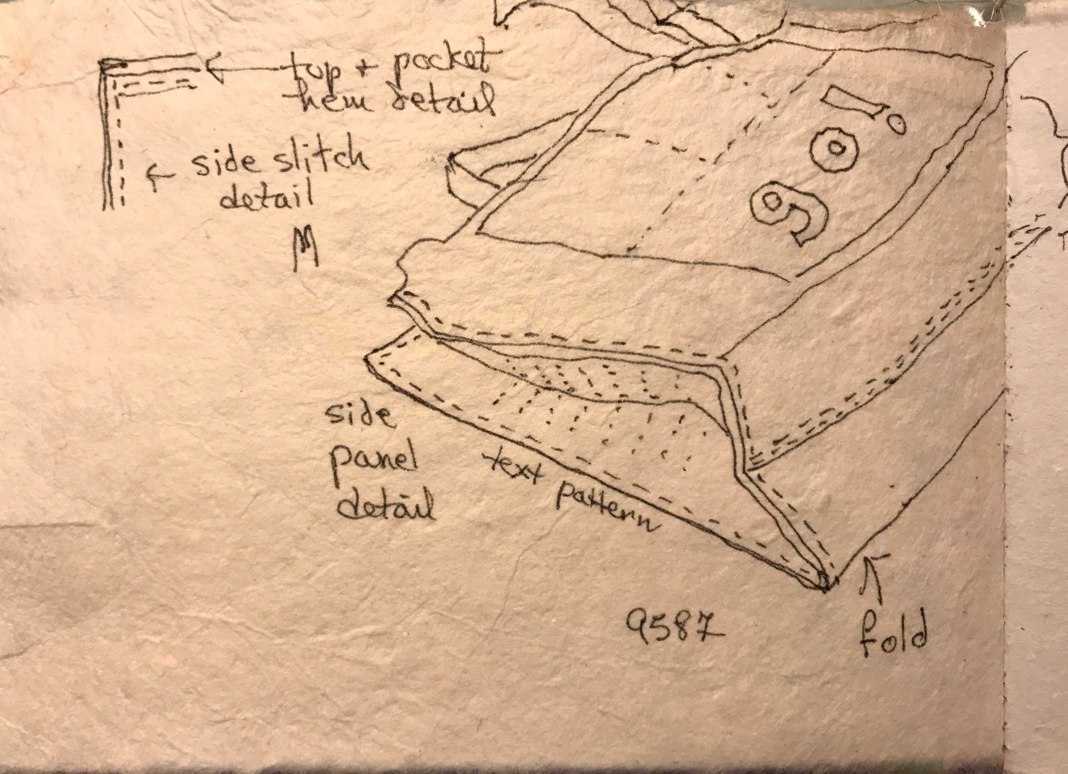 top + pocket
hem detail
side slitch
detail
M
go!
side
panel
detail
text pattern
9587
fold